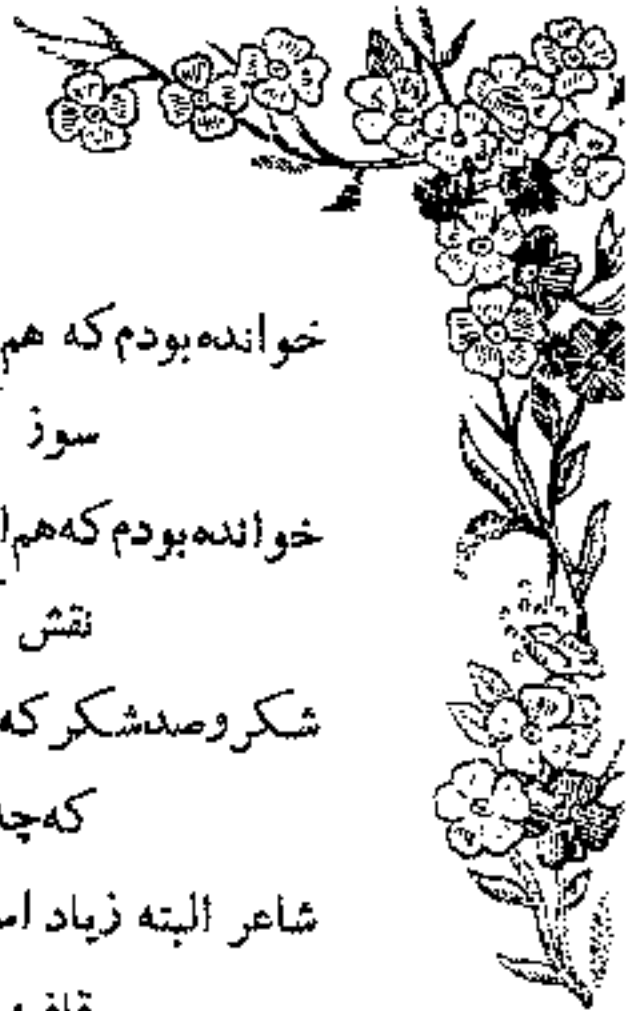 خوانده بودم که هم
سوز
خوانده بودم که هم
نقش
شکر و صد شکر که
که
شاعر البته زیاد